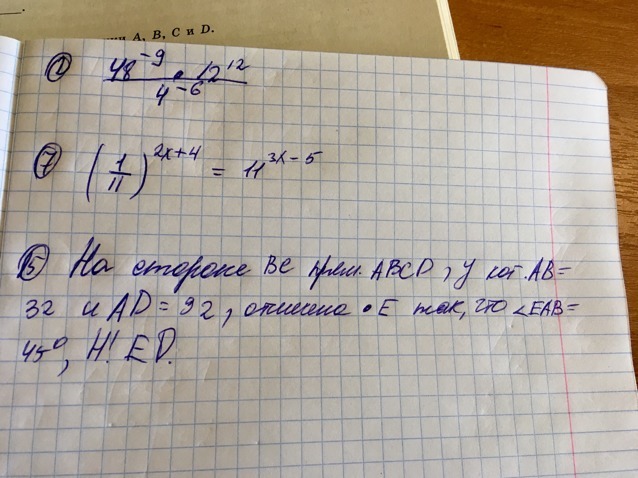 ии А, В, С и D.
① 48⁻⁹ · 12¹² / 4⁻⁶
⑦ (1/11)²ˣ⁺⁴ = 11³ˣ⁻⁵
⑮ На стороне ВС прям. ABCD, у кот. AB=
32 и AD = 92, отмечена • E так, что ∠EAB=
45°, Н! ED.